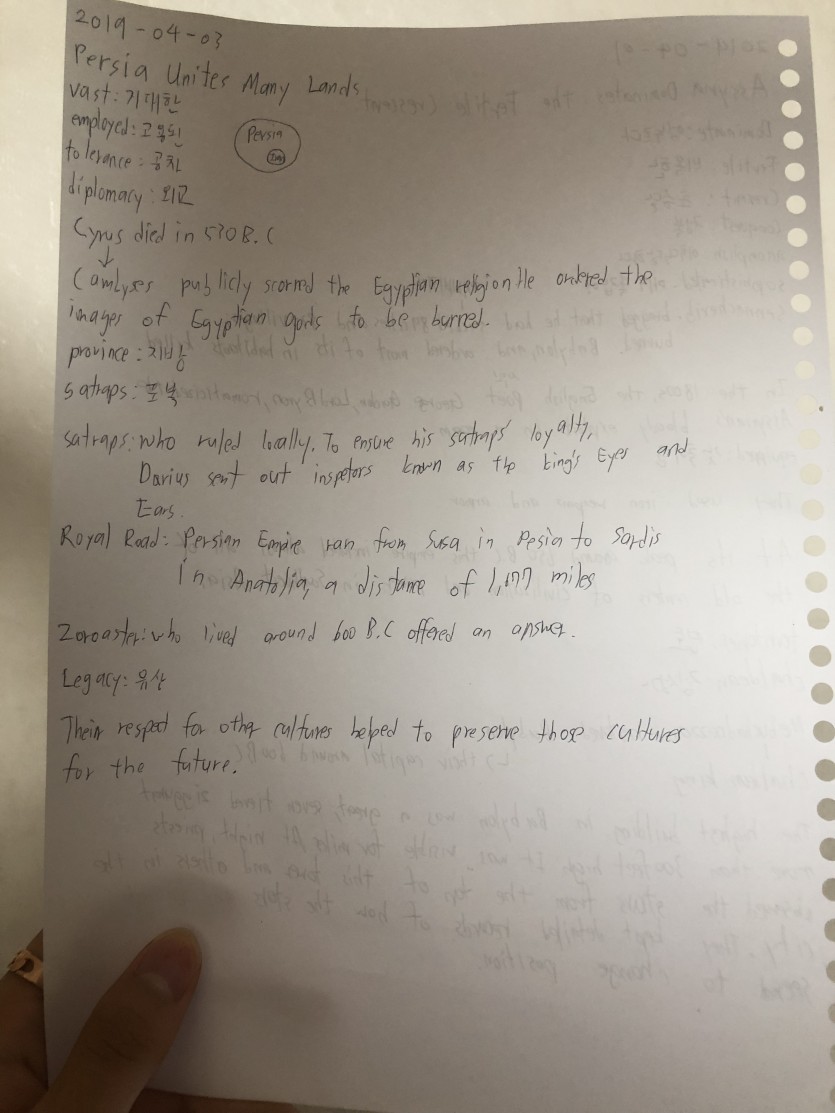 2019-04-03
Persia Unites Many Lands
vast: 기대한
employed: 고용된
Persia
tolerance: 공차
diplomacy: 외교
Cyrus died in 530 B.C
↓
Cambyses publicly scorned the Egyptian religion He ordered the
images of Egyptian gods to be burned.
province: 지방
satraps:
satraps: who ruled locally. To ensure his satraps' loyalty,
Darius sent out inspetors known as the king's Eyes and
Ears.
Royal Road: Persian Empire ran from Susa in Pesia to Sardis
in Anatolia, a distance of 1,677 miles
Zoroaster: who lived around 600 B.C offered an answer.
Legacy: 유산
Their respect for other cultures helped to preserve those cultures
for the future.